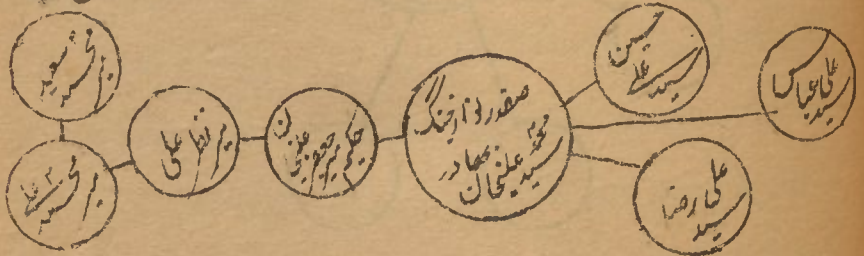 میر محمد سعید
میر محمد علی
میر نظر علی
حکیم میر جعفر علی خان
صفدر نواز جنگ
بہادر
سید محمد علیخان
سید علی حسین
سید علی عباس
سید علی رضا